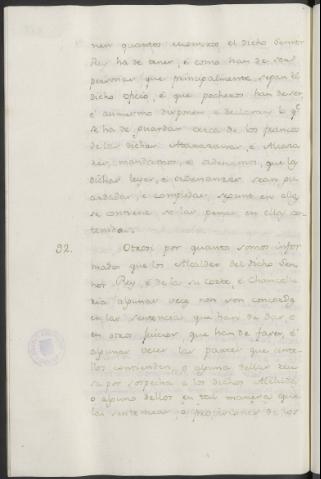 nen quantos escusados, el dicho Sennor
Rey ha de tener, é como han de ser
personas que principalmente sepan el
dicho oficio, é que pechexos han de ser
é asimesmo disponen, e declaran lo q.e
se ha de guardar cerca de los francos
de las dichas Atarazanas, é Alcaza
res, mandamos, é ordenamos, que las
dichas leyes, é ordenanzas sean gu
ardadas, é complidas, segunt en ellas
se contiene so las penas en ellas co
tenidas.
92. Otrosi por quanto somos infor
mados que los Alcaldes del dicho Sen
nor Rey, é de la su corte, é Chancille
ria algunas veces non son concordes
en las sentencias que han de dar, o
en otros juicios, que han de faser, é
algunas veces las partes que ante
ellos contienden, o alguna dellas reu
sa por sospecha a los dichos Alcaldes
o alguno dellos en tal manera que
las sentencias, o provisiones de los